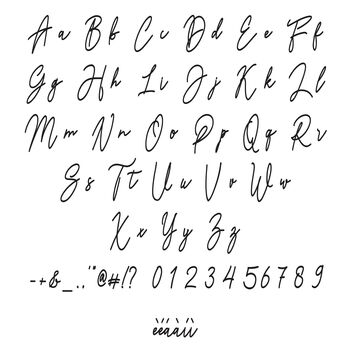 A a B b C c D d E e F f
G g H h I i J j K k L l
M m N n O o P p Q q R r
S s T t U u V v W w
X x Y y Z z
-+&_.,'"@#!? 0123456789
èéàáìí